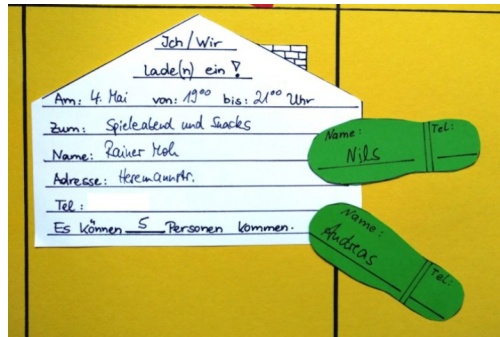 Ich/Wir
lade(n) ein!
Am: 4. Mai von: 19⁰⁰ bis: 21⁰⁰ Uhr
Zum: Spieleabend und Snacks
Name: Rainer Moh
Adresse: Heremannstr.
Tel:
Es können 5 Personen kommen.
Name: Tel:
Nils
Name: Tel:
Andreas